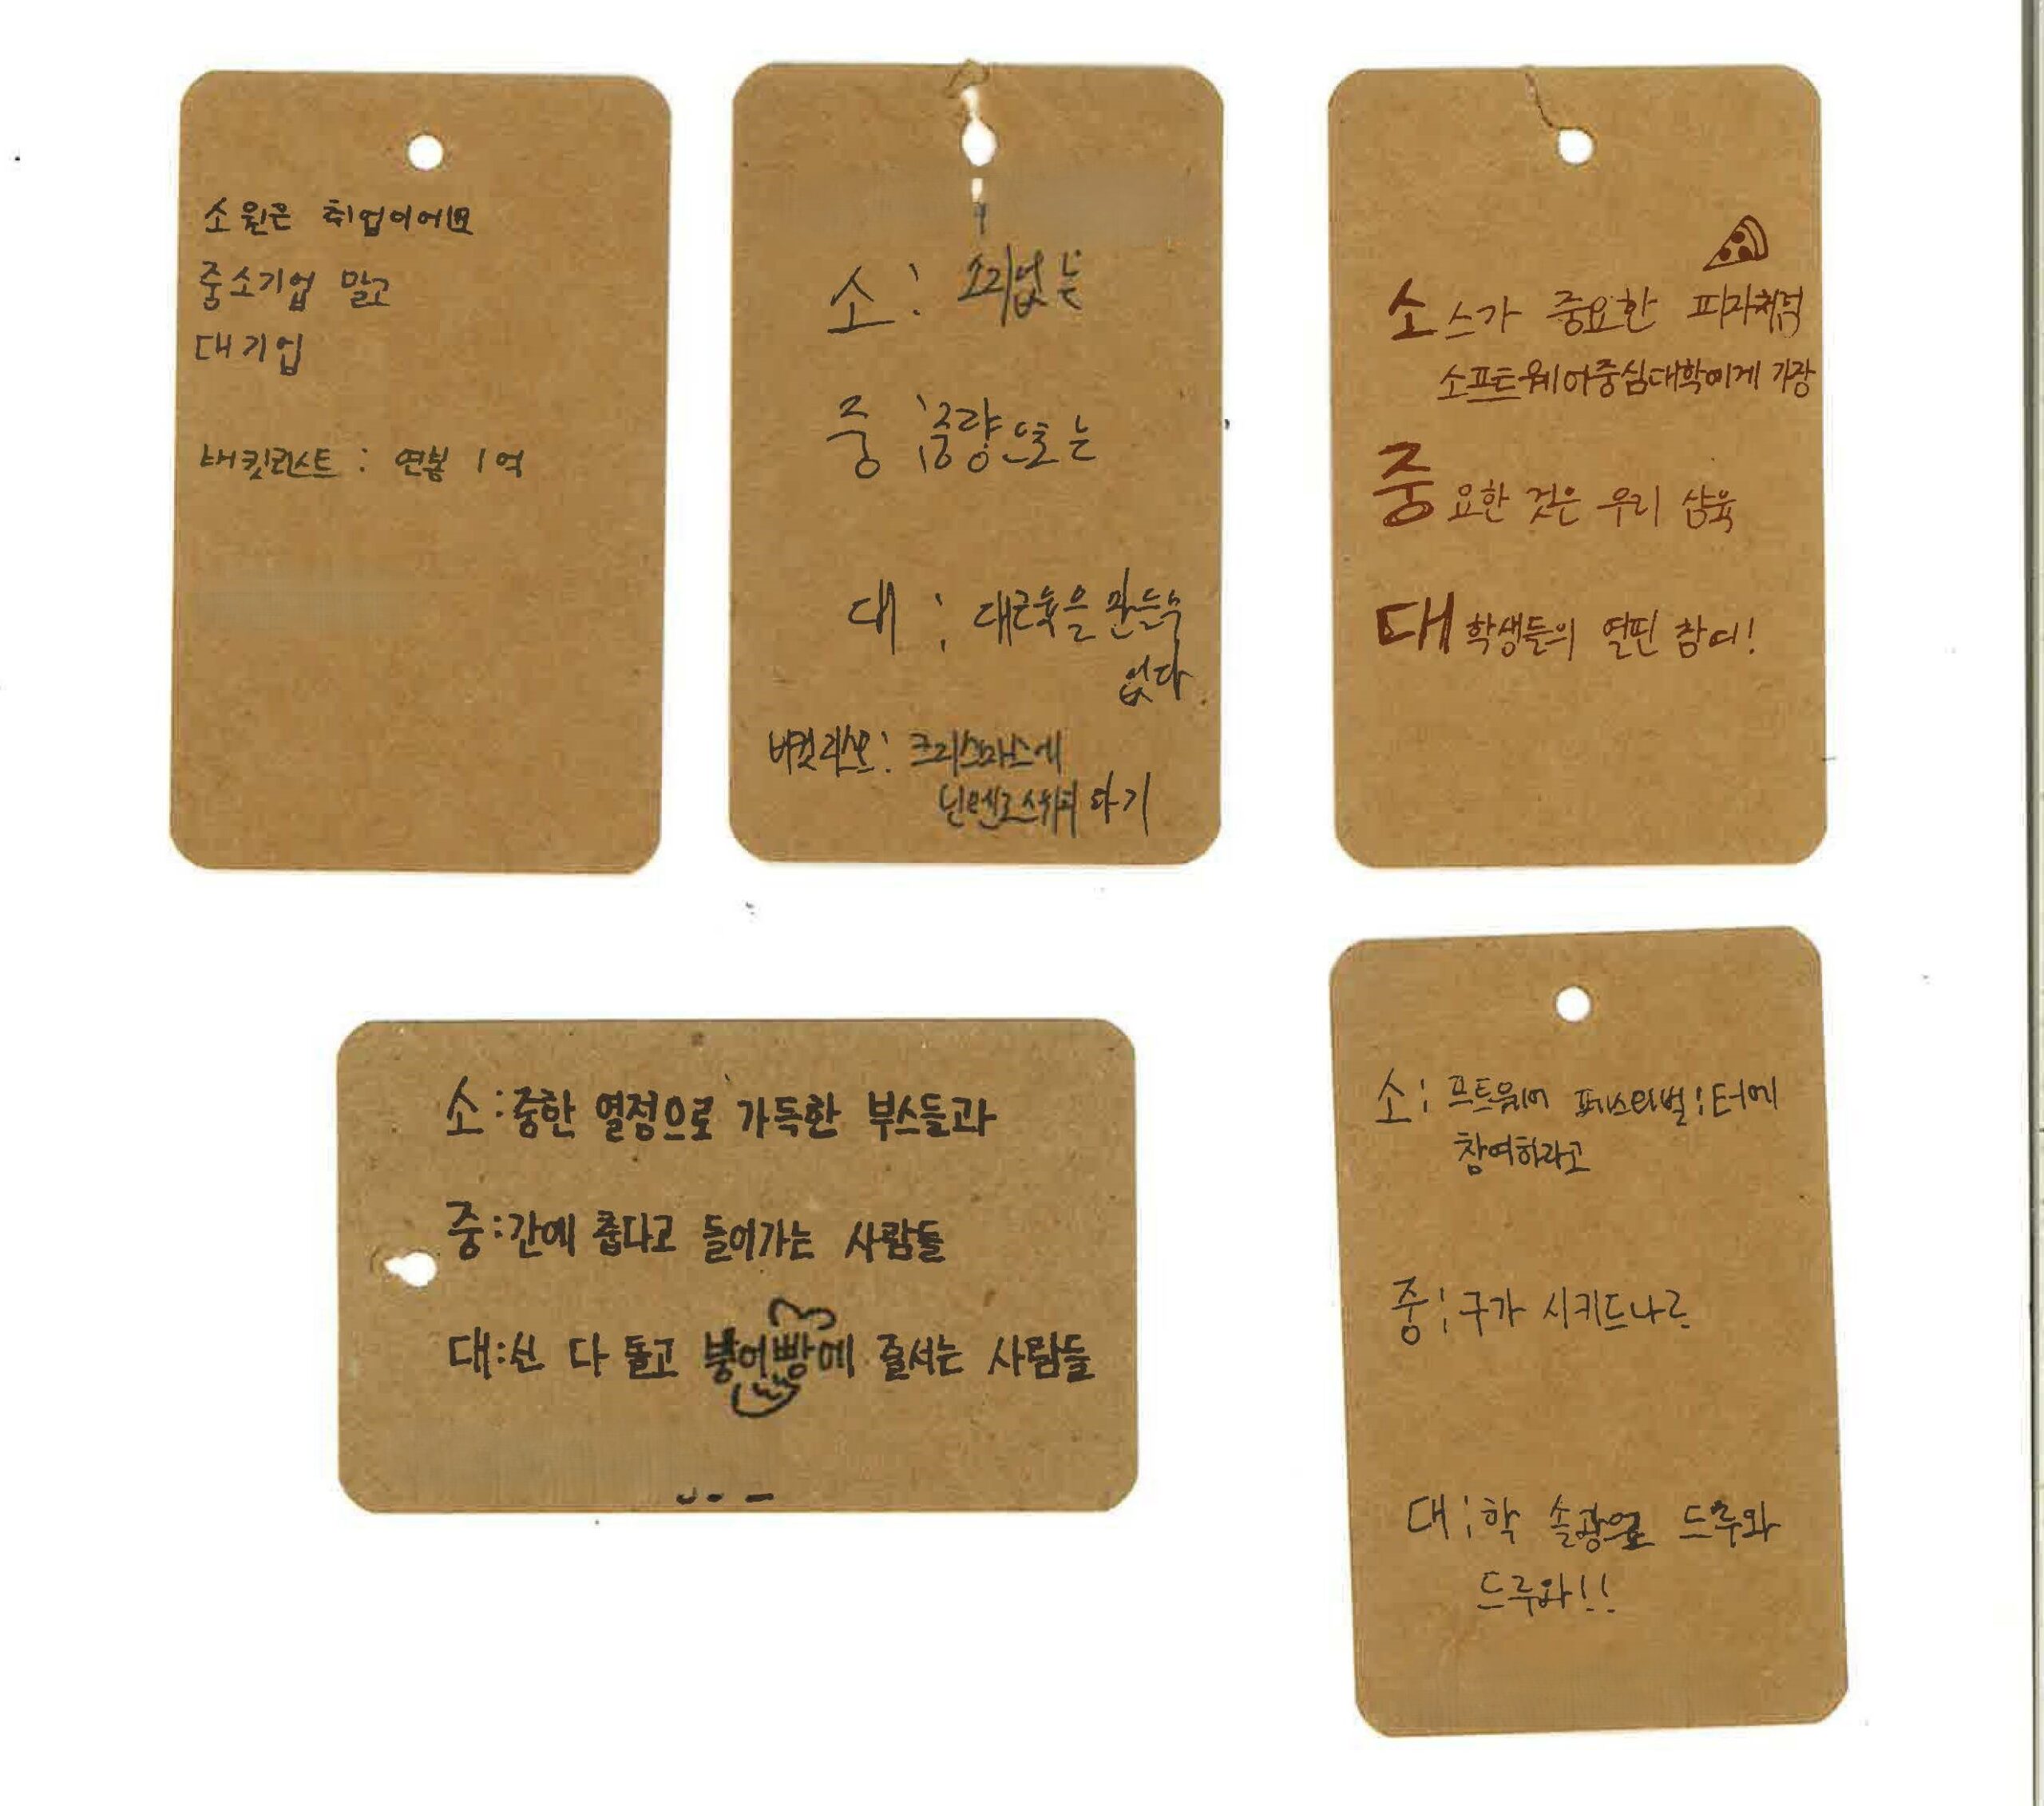 소원은 취업이에요
중소기업 말고
대기업
버킷리스트 : 연봉 1억
소 : 소리없는
중 : 중량 또는
대 : 대근육을 만들수
없다
버킷리스트 : 크리스마스에
닌텐도스위치 하기
소스가 중요한 피자처럼
소프트웨어중심대학에게 가장
중요한 것은 우리 삼육
대학생들의 열띤 참여!
소:중한 열정으로 가득한 부스들과
중:간에 춥다고 들어가는 사람들
대:신 다 돌고 붕어빵에 줄서는 사람들
소: 프트웨어 페스티벌!터에
참여하라고
중: 구가 시키드나
대: 학 솔광으로 드루와
드루와!!